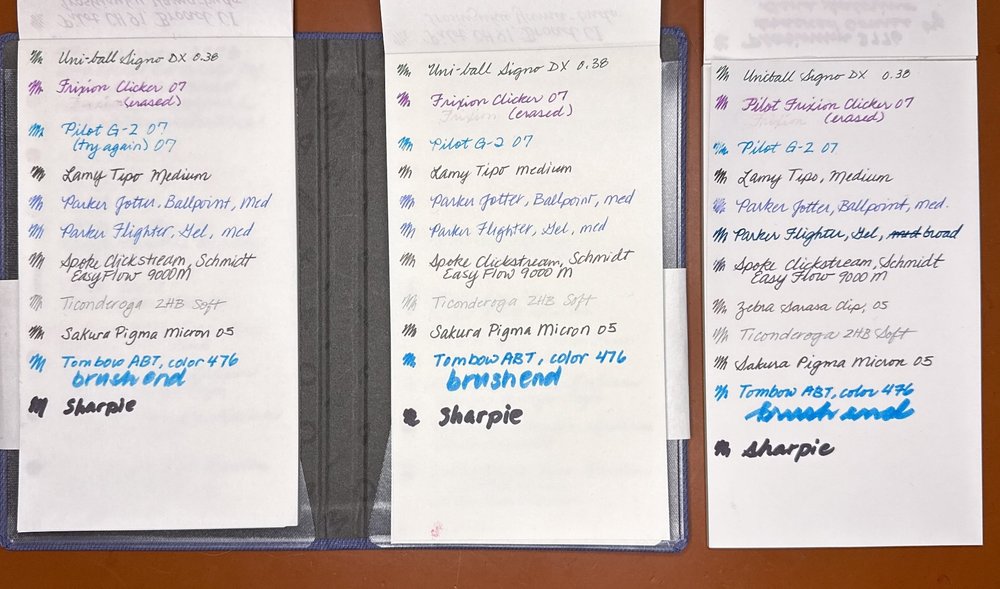 Uni-ball Signo DX 0.38
Frixion Clicker 07
(erased)
Pilot G-2 07
(try again) 07
Lamy Tipo Medium
Parker Jotter, Ballpoint, Med
Parker Flighter, Gel, med
Spoke Clickstream, Schmidt
EasyFlow 9000M
Ticonderoga 2HB Soft
Sakura Pigma Micron 05
Tombow ABT, color 476
brush end
Sharpie
Uni-ball Signo DX 0.38
Frixion Clicker 07
Frixion (erased)
Pilot G-2 07
Lamy Tipo medium
Parker Jotter, Ballpoint, med
Parker Flighter, Gel, med
Spoke Clickstream, Schmidt
Easy Flow 9000 M
Ticonderoga 2HB Soft
Sakura Pigma Micron 05
Tombow ABT, color 476
brush end
Sharpie
Uniball Signo DX 0.38
Pilot Frixion Clicker 07
Frixion (erased)
Pilot G-2 07
Lamy Tipo, Medium
Parker Jotter, Ballpoint, med.
Parker Flighter, Gel, med broad
Spoke Clickstream, Schmidt
Easy Flow 9000 M
Zebra Sarasa Clip, 05
Ticonderoga 2HB Soft
Sakura Pigma Micron 05
Tombow ABT, color 476
brush end
Sharpie